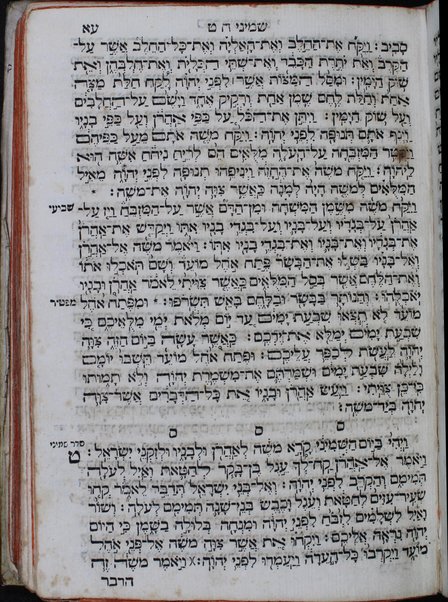 שמיני ה ט
עא
סביב: ויקח את־החלב ואת־האליה ואת־כל־החלב אשר על־
הקרב ואת יתרת הכבד ואת־שתי הכלית ואת־חלבהן ואת
שוק הימין: ומסל המצות אשר לפני יהוה לקח חלת מצה
אחת וחלת לחם שמן אחת ורקיק אחד וישם על־החלבים
ועל שוק הימין: ויתן את־הכל על כפי אהרן ועל כפי בניו
וינף אתם תנופה לפני יהוה: ויקח משה אתם מעל כפיהם
ויקטר המזבחה על־העלה מלאים הם לריח ניחח אשה הוא
ליהוה: ויקח משה את־החזה ויניפהו תנופה לפני יהוה מאיל
המלאים למשה היה למנה כאשר צוה יהוה את־משה:
שביעי
ויקח משה משמן המשחה ומן־הדם אשר על־המזבח ויז על־
אהרן על־בגדיו ועל־בניו ועל־בגדי בניו אתו ויקדש את־אהרן
את־בגדיו ואת־בניו ואת־בגדי בניו אתו: ויאמר משה אל־אהרן
ואל־בניו בשלו את־הבשר פתח אהל מועד ושם תאכלו אתו
ואת־הלחם אשר בסל המלאים כאשר צויתי לאמר אהרן ובניו
יאכלהו: והנותר בבשר ובלחם באש תשרפו: ומפתח אהל
מפטיר
מועד לא תצאו שבעת ימים עד יום מלאת ימי מלאיכם כי
שבעת ימים ימלא את־ידכם: כאשר עשה ביום הזה צוה
יהוה לעשת לכפר עליכם: ופתח אהל מועד תשבו יומם
ולילה שבעת ימים ושמרתם את־משמרת יהוה ולא תמותו
כי־כן צויתי: ויעש אהרן ובניו את כל־הדברים אשר־צוה
יהוה ביד־משה:
ס ס ס
סדר שמיני
ט
ויהי ביום השמיני קרא משה לאהרן ולבניו ולזקני ישראל:
ויאמר אל־אהרן קח־לך עגל בן־בקר לחטאת ואיל לעלה
תמימם והקרב לפני יהוה: ואל־בני ישראל תדבר לאמר קחו
שעיר־עזים לחטאת ועגל וכבש בני־שנה תמימם לעלה: ושור
ואיל לשלמים לזבח לפני יהוה ומנחה בלולה בשמן כי היום
יהוה נראה אליכם: ויקחו את אשר צוה משה אל־פני אהל
מועד ויקרבו כל־העדה ויעמדו לפני יהוה: ויאמר משה זה
הדבר